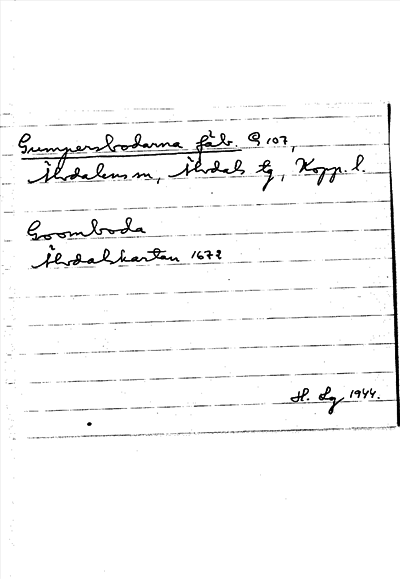 Gumpersbodarna fäb. G 107,
Älvdalens sn, Älvdals tg, Kopp. l.
Goomboda
Älvdalskartan 1672
H. Lg 1944.